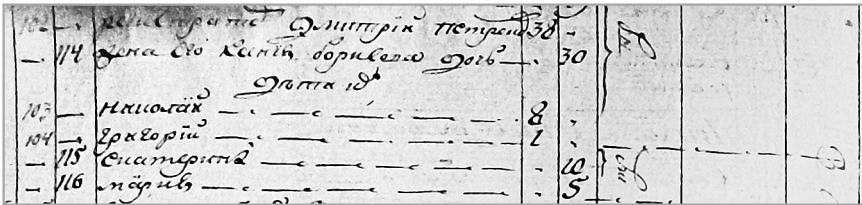 102 — Дмитрій Петровъ 38 -
— 114 жена Его Борисова дочь — 30
Дѣти ихъ
103 — Николай — 8 -
104 — Григорій — 1 -
— 115 Екатерина — 10
— 116 Марія — 5